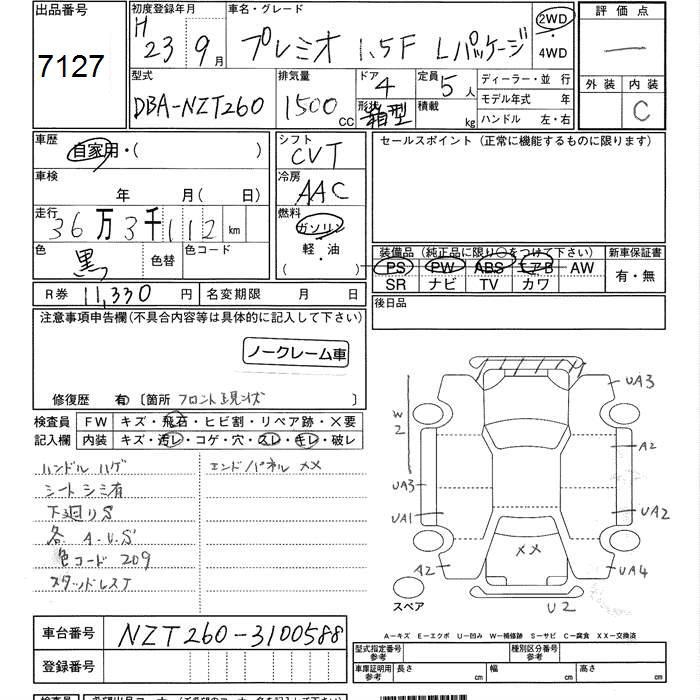 出品番号
7127
初度登録年月
H 23 9月
車名・グレード
プレミオ 1.5F Lパッケージ
2WD
・
4WD
評価点
—
外装
内装
C
型式
DBA-NZT260
排気量
1500
CC
ドア
4
形状
箱型
定員
5人
積載
kg
ディーラー・並行
モデル年式 年
ハンドル 左・右
車歴
自家用・( )
シフト
CVT
セールスポイント (正常に機能するものに限ります)
車検
年 月( 日)
冷房
AAC
走行
36万3千112km
燃料
ガソリン
・
軽・油
( ・ )
色
黒
色替
色コード
装備品 (純正品に限り○をつけて下さい)
PS PW ABS エアB AW
SR ナビ TV カワ
新車保証書
有・無
R券 11,330 円
名変期限 月 日
後日品
注意事項申告欄(不具合内容等は具体的に記入して下さい)
ノークレーム車
修復歴 有 〔箇所 フロント現状 〕
検査員
記入欄
FW キズ・飛石・ヒビ割・リペア跡・×要
内装 キズ・汚レ・コゲ・穴・スレ・キレ・破レ
ハンドル ハゲ
エンドパネル ××
シートシミ有
下廻りS
各 A.U.S
色コード 209
スタッドレス
W2
UA3
A2
UA3
UA1
UA2
××
A2
UA4
U2
スペア
A-キズ E-エクボ U-凹み W-補修跡 S-サビ C-腐食 XX-交換済
車台番号
NZT260-3100588
登録番号
型式指定番号
参考
種別区分番号
参考
車庫証明用
参考
長さ cm
幅 cm
高さ cm